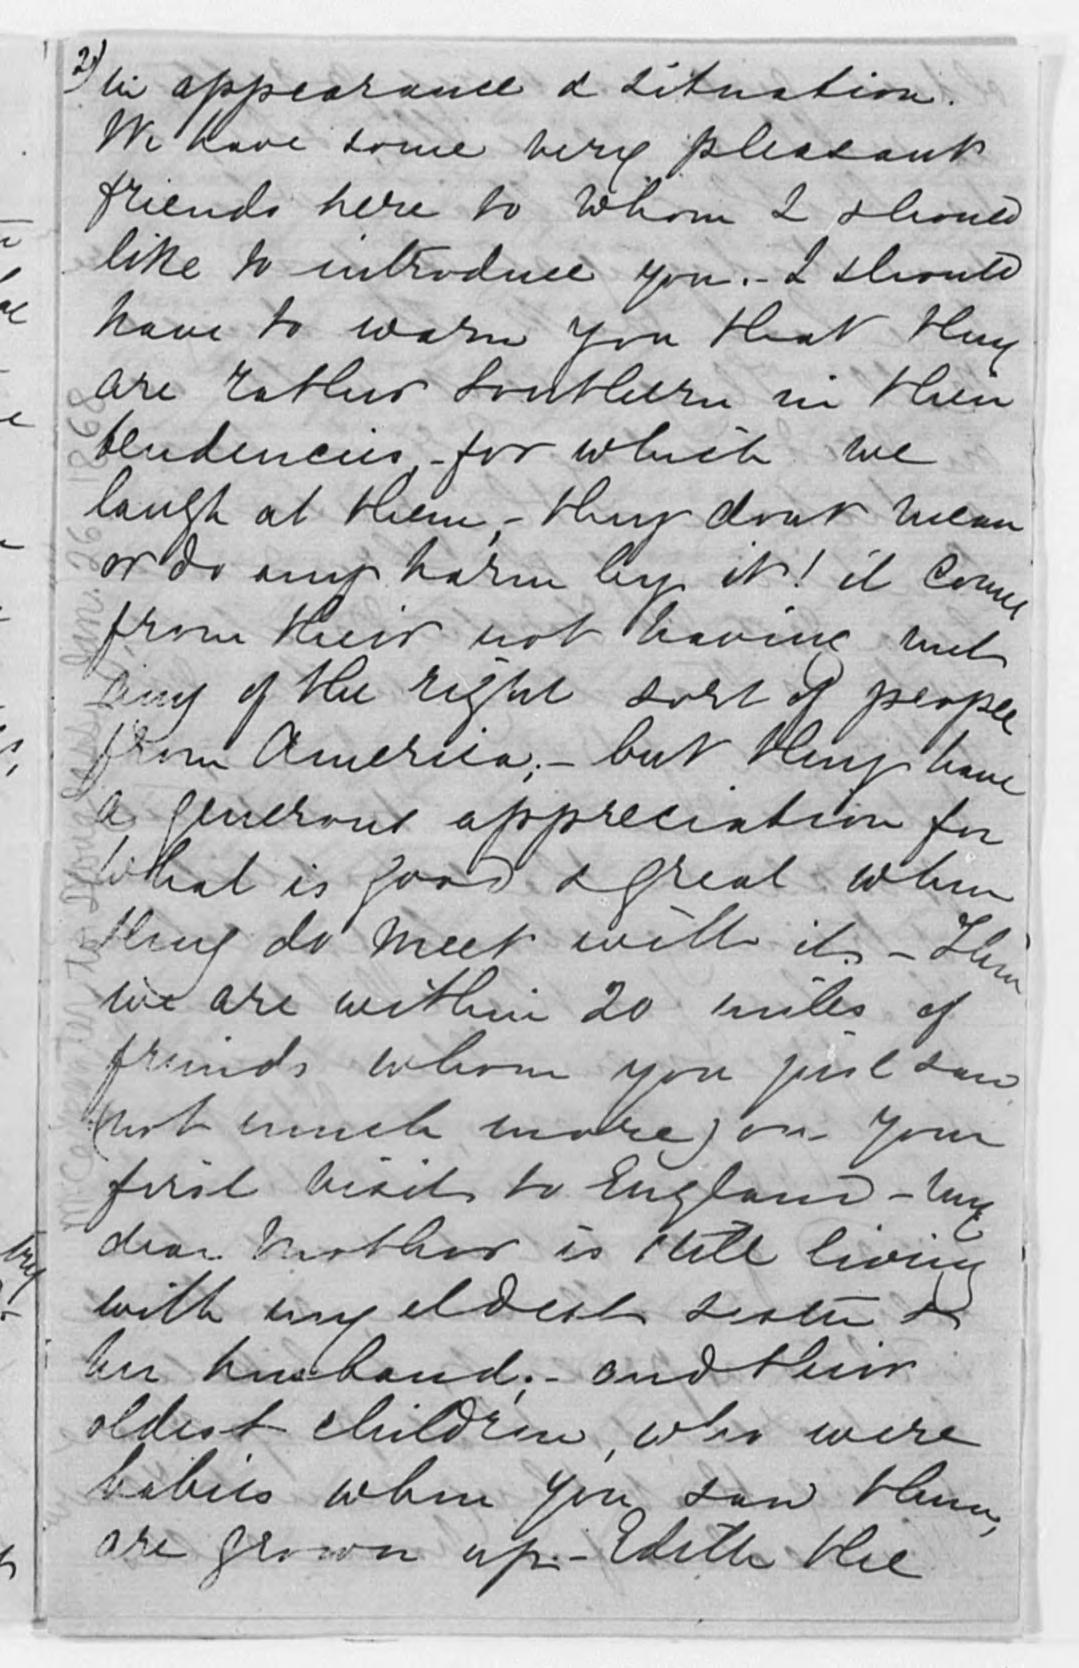 2)
in appearance & situation.
We have some very pleasant
friends here to whom I should
like to introduce you.- I should
have to warn you that they
are rather Southern in their
tendencies,- for which we
laugh at them,- they dont mean
or do any harm by it! it comes
from their not having met
any of the right sort of people
from America;- but they have
a generous appreciation for
what is good & great when
they do meet with it. - Then
we are within 20 miles of
friends whom you just saw
(not much more) on your
first visit to England - My
dear Mother is still living
with my eldest sister &
her husband;- and their
oldest children, who were
babies when you saw them,
are grown up.- Edith the
to Douglass, Jan. 26, 1868